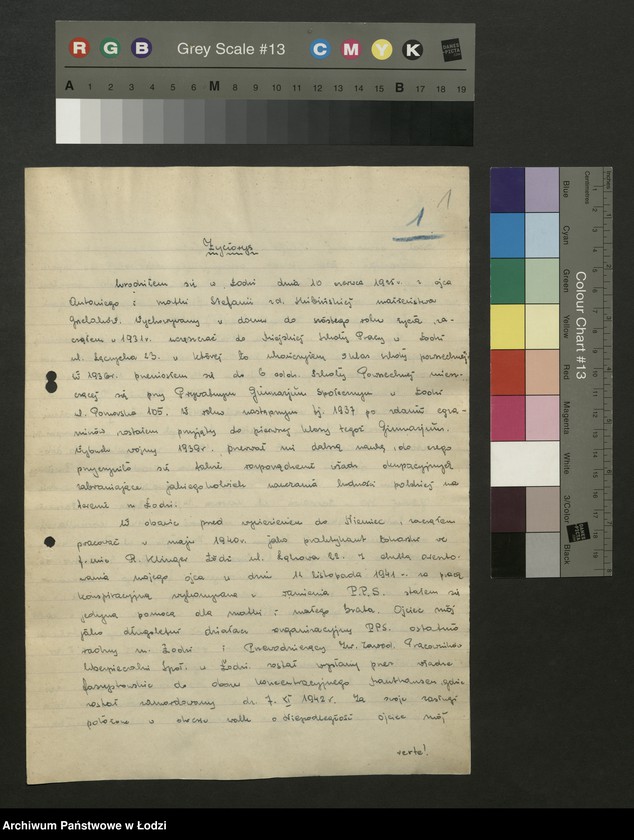 R G B Grey Scale #13 C M Y K DANES PICTA
A 1 2 3 4 5 6 M 8 9 10 11 12 13 14 15 B 17 18 19
1 1
Życiorys
Urodziłem się w Łodzi dnia 10 czerwca 1925r. z ojca
Antoniego i matki Stefanii zd. małżeństwa
Wychowywany w domu do szóstego roku życia, za-
cząłem w 1931r. uczęszczać do Miejskiej Szkoły Pracy w Łodzi
ul. Łęczycka 23. w której to ukończyłem 5 klas szkoły powszechnej.
W 1936r. przeniosłem się do 6 oddz. Szkoły Powszechnej miesz-
czącej się przy Prywatnym Gimnazjum Społecznym w Łodzi
ul. Pomorska 105. W roku następnym tj. 1937 po zdaniu egza-
minów zostałem przyjęty do pierwszej klasy tegoż Gimnazjum.
Wybuch wojny 1939r. przerwał mi dalszą naukę, do czego
przyczyniło się także rozporządzenie władz okupacyjnych
zabraniające jakiegokolwiek nauczania ludności polskiej na
terenie m. Łodzi.
W obawie przed wywiezieniem do Niemiec, zacząłem
pracować w maju 1940r. jako praktykant w
f-mie R. Klinger Łódź ul. Łąkowa 22. Z chwilą areszto-
wania mojego ojca w dniu 11 listopada 1941r. za pracę
konspiracyjną wykonywaną z ramienia P.P.S. stałem się
jedyną pomocą dla matki i małego brata. Ojciec mój
jako długoletni działacz organizacyjny PPS. ostatnio
radny m. Łodzi i Przewodniczący Zw. Zawod. Pracowników
Ubezpieczalni Społ. w Łodzi został wysłany przez władze
faszystowskie do obozu koncentracyjnego Mauthausen, gdzie
został zamordowany dn. 7. XI 1942r. Za swoje zasługi
położone w okresie walk o niepodległość ojciec mój
verte!
Colour Chart #13
Blue Cyan Green Yellow Red Magenta White 3/Color Black
Centimetres Inches
DANES PICTA
Archiwum Państwowe w Łodzi